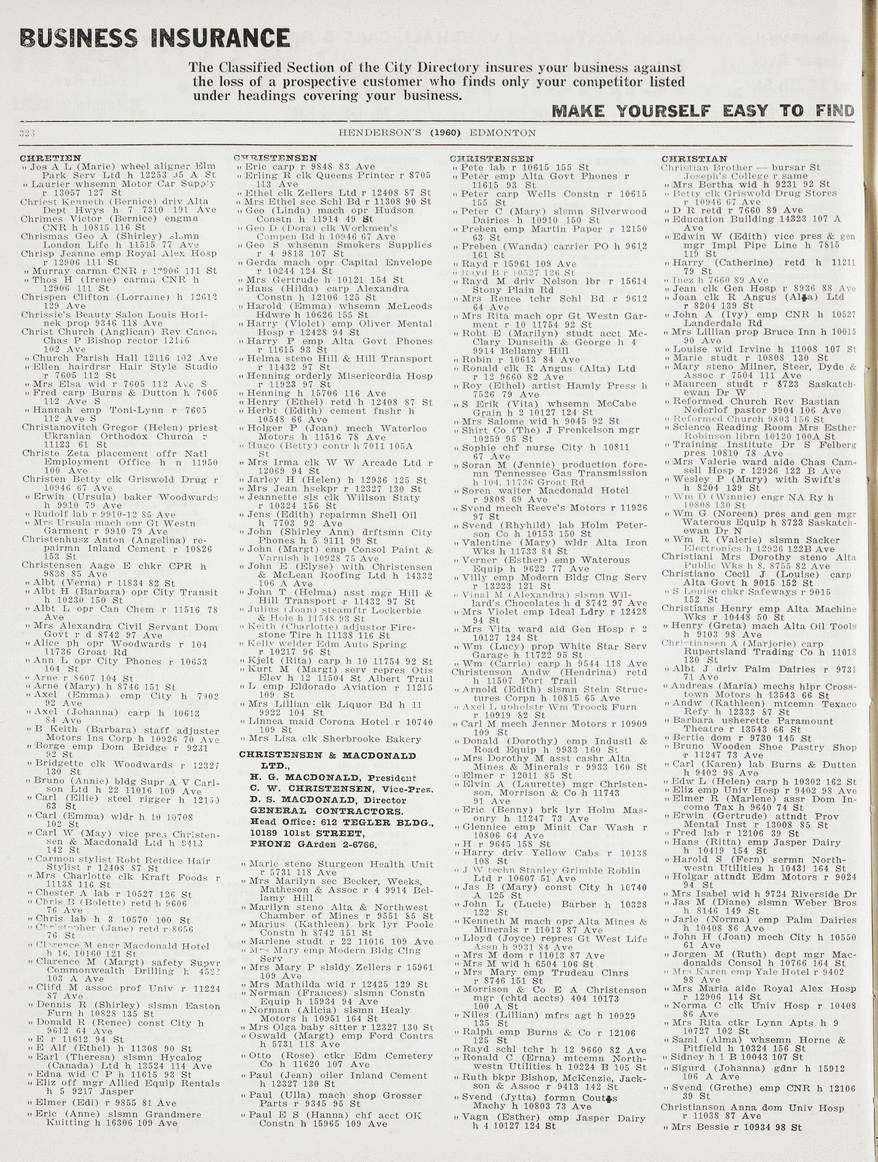 BUSINESS INSURANCE
The Classified Section of the City Directory insures your business against
the loss of a prospective customer who finds only your competitor listed
under headings covering your business.
MAKE YOURSELF EASY TO FIND
323
HENDERSON'S (1960) EDMONTON
CHRETIEN
" Jos A L (Marie) wheel aligner Elm
Park Serv Ltd h 12253 A St
" Laurier whsemn Motor Car Supply
r 13057 127 St
Chriest Kenneth (Bernice) driv Alta
Dept Hwys h 7 7310 101 Ave
Chrimes Victor (Bernice) engmn
CNR h 10815 116 St
Chrismas Geo A (Shirley) slsmn
London Life h 11515 77 Ave
Chrisp Jeanne emp Royal Alex Hosp
r 12906 111 St
" Murray carmn CNR r 12906 111 St
" Thos H (Irene) carmn CNR h
12906 111 St
Chrispen Clifton (Lorraine) h 12612
129 Ave
Chrissie's Beauty Salon Louis Hori-
nek prop 9346 118 Ave
Christ Church (Anglican) Rev Canon
Chas P Bishop rector 12116
102 Ave
" Church Parish Hall 12116 102 Ave
" Ellen hairdrsr Hair Style Studio
r 7605 112 St
" Mrs Elsa wid r 7605 112 Ave S
" Fred carp Burns & Dutton h 7605
112 Ave S
" Hannah emp Toni-Lynn r 7605
112 Ave S
Christanovitch Gregor (Helen) priest
Ukranian Orthodox Church r
11123 61 St
Christe Zeta placement offr Natl
Employment Office h n 11950
100 Ave
Christen Betty clk Griswold Drug r
10946 67 Ave
" Erwin (Ursula) baker Woodwards
h 9910 79 Ave
" Rudolf lab r 9910-12 85 Ave
" Mrs Ursula mach opr Gt Westn
Garment r 9910 79 Ave
Christenhusz Anton (Angelina) re-
pairmn Inland Cement r 10826
153 St
Christensen Aage E chkr CPR h
9828 85 Ave
" Albt (Verna) r 11834 82 St
" Albt H (Barbara) opr City Transit
h 10230 150 St
" Albt L opr Can Chem r 11516 78
Ave
" Mrs Alexandra Civil Servant Dom
Govt r d 8742 97 Ave
" Alice ph opr Woodwards r 104
11736 Groat Rd
" Ann L opr City Phones r 10653
104 St
" Arne r 8607 104 St
" Arne (Mary) h 8746 151 St
" Axel (Emma) emp City h 7902
92 Ave
" Axel (Johanna) carp h 10613
84 Ave
" B Keith (Barbara) staff adjuster
Motors Ins Corp h 10926 70 Ave
" Borge emp Dom Bridge r 9231
92 St
" Bridgette clk Woodwards r 12327
130 St
" Bruno (Annie) bldg Supr A V Carl-
son Ltd h 22 11016 109 Ave
" Carl (Ellie) steel rigger h 12150
63 St
" Carl (Emma) wldr h 10 10708
102 St
" Carl W (May) vice pres Christen-
sen & Macdonald Ltd h 9413
142 St
" Carmon stylist Robt Retdice Hair
Stylist r 12408 87 St
" Mrs Charlotte clk Kraft Foods r
11138 116 St
" Chester A lab r 10527 126 St
" Chris B (Bolette) retd h 9606
76 Ave
" Chris lab h 3 10570 100 St
" Christopher (Jane) retd r 8656
76 St
" Clarence M ener Macdonald Hotel
h 16, 10160 121 St
" Clarence M (Margt) safety Supvr
Commonwealth Drilling h 4522
103 A Ave
" Clifd M assoc prof Univ r 11224
87 Ave
" Dennis R (Shirley) slsmn Easton
Furn h 10828 135 St
" Donald R (Renee) const City h
9612 64 Ave
" E r 11612 94 St
" E Alf (Ethel) h 11308 90 St
" Earl (Theresa) slsmn Hycalog
(Canada) Ltd h 13524 114 Ave
" Edna wid C P h 11615 93 St
" Eliz off mgr Allied Equip Rentals
h 5 9217 Jasper
" Elmer (Edi) r 9855 81 Ave
" Eric (Anne) slsmn Grandmere
Knitting h 16306 109 Ave
CHRISTENSEN
" Eric carp r 9848 83 Ave
" Erling R clk Queens Printer r 8705
113 Ave
" Ethel clk Zellers Ltd r 12408 87 St
" Mrs Ethel sec Schl Bd r 11308 90 St
" Geo (Linda) mach opr Hudson
Constn h 11914 49 St
" Geo D (Dora) clk Workmen's
Compen Bd h 10946 67 Ave
" Geo S whsemn Smokers Supplies
r 4 9813 107 St
" Gerda mach opr Capital Envelope
r 10244 124 St
" Mrs Gertrude h 10121 154 St
" Hans (Hilda) carp Alexandra
Constn h 12106 125 St
" Harold (Emma) whsemn McLeods
Hdwre h 10626 155 St
" Harry (Violet) emp Oliver Mental
Hosp r 12428 94 St
" Harry P emp Alta Govt Phones
r 11615 93 St
" Helma steno Hill & Hill Transport
r 11432 97 St
" Henning orderly Misericordia Hosp
r 11923 97 St
" Henning h 15706 116 Ave
" Henry (Ethel) retd h 12408 87 St
" Herbt (Edith) cement fnshr h
10548 66 Ave
" Holger P (Joan) mech Waterloo
Motors h 11516 78 Ave
" Hugo (Betty) contr h 7011 105A
St
" Mrs Irma clk W W Arcade Ltd r
12069 94 St
" Jarley H (Helen) h 12936 125 St
" Mrs Jean hsekpr r 12327 130 St
" Jeannette sls clk Willson Staty
r 10324 156 St
" Jens (Edith) repairmn Shell Oil
h 7703 92 Ave
" John (Shirley Ann) drftsmn City
Phones h 5 9111 99 St
" John (Margt) emp Consol Paint &
Varnish h 10928 75 Ave
" John E (Elyse) with Christensen
& McLean Roofing Ltd h 14332
106 A Ave
" John T (Helma) asst mgr Hill &
Hill Transport r 11432 97 St
" Julius (Joan) steamftr Lockerbie
& Hole h 11548 93 St
" Keith (Charlotte) adjustor Fire-
stone Tire h 11138 116 St
" Kelly welder Edm Auto Spring
r 10217 96 St
" Kjelt (Rita) carp h 10 11754 92 St
" Kurt M (Margt) serv repres Otis
Elev h 12 11504 St Albert Trail
" L emp Eldorado Aviation r 11215
109 St
" Mrs Lillian clk Liquor Bd h 11
9922 104 St
" Linnea maid Corona Hotel r 10740
109 St
" Mrs Lisa clk Sherbrooke Bakery
CHRISTENSEN & MACDONALD
LTD.,
H. G. MACDONALD, President
C. W. CHRISTENSEN, Vice-Pres.
D. S. MACDONALD, Director
GENERAL CONTRACTORS.
Head Office: 612 TEGLER BLDG.,
10189 101st STREET,
PHONE GArden 2-6766.
" Marie steno Sturgeon Health Unit
r 5731 118 Ave
" Mrs Marilyn sec Becker, Weeks,
Matheson & Assoc r 4 9914 Bel-
lamy Hill
" Marilyn steno Alta & Northwest
Chamber of Mines r 9551 85 St
" Marius (Kathleen) brk lyr Poole
Constn h 8742 151 St
" Marlene studt r 22 11016 109 Ave
" Mrs Mary emp Modern Bldg Clng
Serv
" Mrs Mary P slsldy Zellers r 15961
109 Ave
" Mrs Mathilda wid r 12425 129 St
" Norman (Frances) slsmn Constn
Equip h 15934 94 Ave
" Norman (Alicia) slsmn Healy
Motors h 10951 164 St
" Mrs Olga baby sitter r 12327 130 St
" Oswald (Margt) emp Ford Contrs
h 5731 118 Ave
" Otto (Rose) ctkr Edm Cemetery
Co h 11620 107 Ave
" Paul (Jean) oiler Inland Cement
h 12327 130 St
" Paul (Ulla) mach shop Grosser
Parts r 9345 95 St
" Paul E S (Hanna) chf acct OK
Constn h 15965 109 Ave
CHRISTENSEN
" Pete lab r 10615 155 St
" Peter emp Alta Govt Phones r
11615 93 St
" Peter carp Wells Constn r 10615
155 St
" Peter C (Mary) slsmn Silverwood
Dairies h 10910 150 St
" Preben emp Martin Paper r 12150
63 St
" Preben (Wanda) carrier PO h 9612
161 St
" Rayd r 15961 109 Ave
" Rayd B r 10527 126 St
" Rayd M driv Nelson lbr r 15614
Stony Plain Rd
" Mrs Renee tchr Schl Bd r 9612
64 Ave
" Mrs Rita mach opr Gt Westn Gar-
ment r 10 11754 92 St
" Robt E (Marilyn) studt acct Mc-
Clary Dunseith & George h 4
9914 Bellamy Hill
" Robin r 10613 84 Ave
" Ronald clk R Angus (Alta) Ltd
r 12 9660 82 Ave
" Roy (Ethel) artist Hamly Press h
7526 79 Ave
" S Erik (Vita) whsemn McCabe
Grain h 2 10127 124 St
" Mrs Salome wid h 9045 92 St
" Shirt Co (The) J Frenkelson mgr
10259 95 St
" Sophie chf nurse City h 10811
67 Ave
" Soran M (Jennie) production fore-
mn Tennessee Gas Transmission
h 104, 11736 Groat Rd
" Soren waiter Macdonald Hotel
r 9808 69 Ave
" Svend mech Reeve's Motors r 11926
97 St
" Svend (Rhyhild) lab Holm Peter-
son Co h 10153 150 St
" Valentine (Mary) wldr Alta Iron
Wks h 11733 84 St
" Verner (Esther) emp Waterous
Equip h 9622 77 Ave
" Villy emp Modern Bldg Clng Serv
r 13223 121 St
" Vinal M (Alexandra) slsmn Wil-
lard's Chocolates h d 8742 97 Ave
" Mrs Violet emp Ideal Ldry r 12428
94 St
" Mrs Vita ward aid Gen Hosp r 2
10127 124 St
" Wm (Lucy) prop White Star Serv
Garage h 11722 95 St
" Wm (Carrie) carp h 9544 118 Ave
Christenson Andw (Hendrina) retd
h 11507 Fort Trail
" Arnold (Edith) slsmn Stein Struc-
tures Corpn h 10815 65 Ave
" Axel L upholstr Wm Troock Furn
r 10919 82 St
" Carl M mech Jenner Motors r 10909
109 St
" Donald (Dorothy) emp Industl &
Road Equip h 9933 160 St
" Mrs Dorothy M asst cashr Alta
Mines & Minerals r 9933 160 St
" Elmer r 12011 85 St
" Elvin A (Laurette) mgr Christen-
son, Morrison & Co h 11743
91 Ave
" Eric (Benny) brk lyr Holm Mas-
onry h 11247 73 Ave
" Glennice emp Minit Car Wash r
10806 64 Ave
" H r 9645 158 St
" Harry driv Yellow Cabs r 10138
108 St
" J W techn Stanley Grimble Roblin
Ltd r 10607 51 Ave
" Jas B (Mary) const City h 10740
A 125 St
" John L (Lucie) Barber h 10328
122 St
" Kenneth M mach opr Alta Mines &
Minerals r 11013 87 Ave
" Lloyd (Joyce) repres Gt West Life
Assn h 9931 84 Ave
" Mrs M dom r 11013 87 Ave
" Mrs M wid h 6504 106 St
" Mrs Mary emp Trudeau Clnrs
r 8746 151 St
" Morrison & Co E A Christenson
mgr (chtd accts) 404 10173
100 A St
" Niles (Lillian) mfrs agt h 10929
135 St
" Ralph emp Burns & Co r 12106
125 St
" Rayd schl tchr h 12 9660 82 Ave
" Ronald C (Erna) mtcemn North-
westn Utilities h 10224 B 105 St
" Ruth bkpr Bishop, McKenzie, Jack-
son & Assoc r 9413 142 St
" Svend (Jytta) formn Coutts
Machy h 10803 73 Ave
" Vagn (Esther) emp Jasper Dairy
h 4 10127 124 St
CHRISTIAN
Christian Brother — bursar St
Joseph's College r same
" Mrs Bertha wid h 9231 92 St
" Betty clk Griswold Drug Stores
r 10946 67 Ave
" D R retd r 7660 89 Ave
" Education Building 14323 107 A
Ave
" Edwin W (Edith) vice pres & gen
mgr Impl Pipe Line h 7815
119 St
" Harry (Catherine) retd h 11211
79 St
" Inez h 7660 89 Ave
" Jean clk Gen Hosp r 8936 88 Ave
" Joan clk R Angus (Alta) Ltd
r 8204 139 St
" John A (Ivy) emp CNR h 10527
Landerdale Rd
" Mrs Lillian prop Bruce Inn h 10015
90 Ave
" Louise wid Irvine h 11008 107 St
" Marie studt r 10808 130 St
" Mary steno Milner, Steer, Dyde &
Assoc r 7504 111 Ave
" Maureen studt r 8723 Saskatch-
ewan Dr W
" Reformed Church Rev Bastian
Nederlof pastor 9904 106 Ave
" Reformed Church 9803 156 St
" Science Reading Room Mrs Esther
Robinson librn 10120 100A St
" Training Institute Dr S Felberg
pres 10810 78 Ave
" Mrs Valerie ward aide Chas Cam-
sell Hosp r 12926 122 B Ave
" Wesley P (Mary) with Swift's
h 8204 139 St
" Wm D (Winnie) engr NA Ry h
10808 130 St
" Wm G (Noreen) pres and gen mgr
Waterous Equip h 8723 Saskatch-
ewan Dr N
" Wm R (Valerie) slsmn Sacker
Electronics h 12926 122B Ave
Christiani Mrs Dorothy steno Alta
Public Wks h 8, 8755 82 Ave
Christiano Cecil J (Louise) carp
Alta Govt h 9015 152 St
" S Louise chkr Safeways r 9015
152 St
Christians Henry emp Alta Machine
Wks r 10448 50 St
" Henry (Greta) mach Alta Oil Tools
h 9103 98 Ave
Christiansen A (Marjorie) carp
Rupertsland Trading Co h 11018
130 St
" Albt J driv Palm Dairies r 9731
71 Ave
" Andreas (Maria) mechs hlpr Cross-
town Motors h 13543 66 St
" Andw (Kathleen) mtcemn Texaco
Refy h 12333 87 St
" Barbara usherette Paramount
Theatre r 13543 66 St
" Bertie dom r 9730 145 St
" Bruno Wooden Shoe Pastry Shop
r 11247 73 Ave
" Carl (Karen) lab Burns & Dutten
h 9402 98 Ave
" Edw L (Helen) carp h 10302 162 St
" Eliz emp Univ Hosp r 9402 98 Ave
" Elmer R (Marlene) assr Dom In-
come Tax h 9640 74 St
" Erwin (Gertrude) attndt Prov
Mental Inst r 13008 85 St
" Fred lab r 12106 39 St
" Hans (Ritta) emp Jasper Dairy
h 10419 154 St
" Harold S (Fern) sermn North-
westn Utilities h 10431 164 St
" Holgar attndt Edm Motors r 9024
94 St
" Mrs Isabel wid h 9724 Riverside Dr
" Jas M (Diane) slsmn Weber Bros
h 8146 149 St
" Jarle (Norma) emp Palm Dairies
h 10408 86 Ave
" John H (Joan) mech City h 10550
61 Ave
" Jorgen M (Ruth) dept mgr Mac-
donalds Consol h 10766 164 St
" Mrs Karen emp Yale Hotel r 9402
98 Ave
" Mrs Maria aide Royal Alex Hosp
r 12906 114 St
" Norma C clk Univ Hosp r 10408
86 Ave
" Mrs Rita ctkr Lynn Apts h 9
10727 102 St
" Saml (Alma) whsemn Horne &
Pitfield h 10324 156 St
" Sidney h 1 B 10043 107 St
" Sigurd (Johanna) gdnr h 15912
106 A Ave
" Svend (Grethe) emp CNR h 12106
39 St
Christianson Anna dom Univ Hosp
r 11038 87 Ave
" Mrs Bessie r 10934 98 St